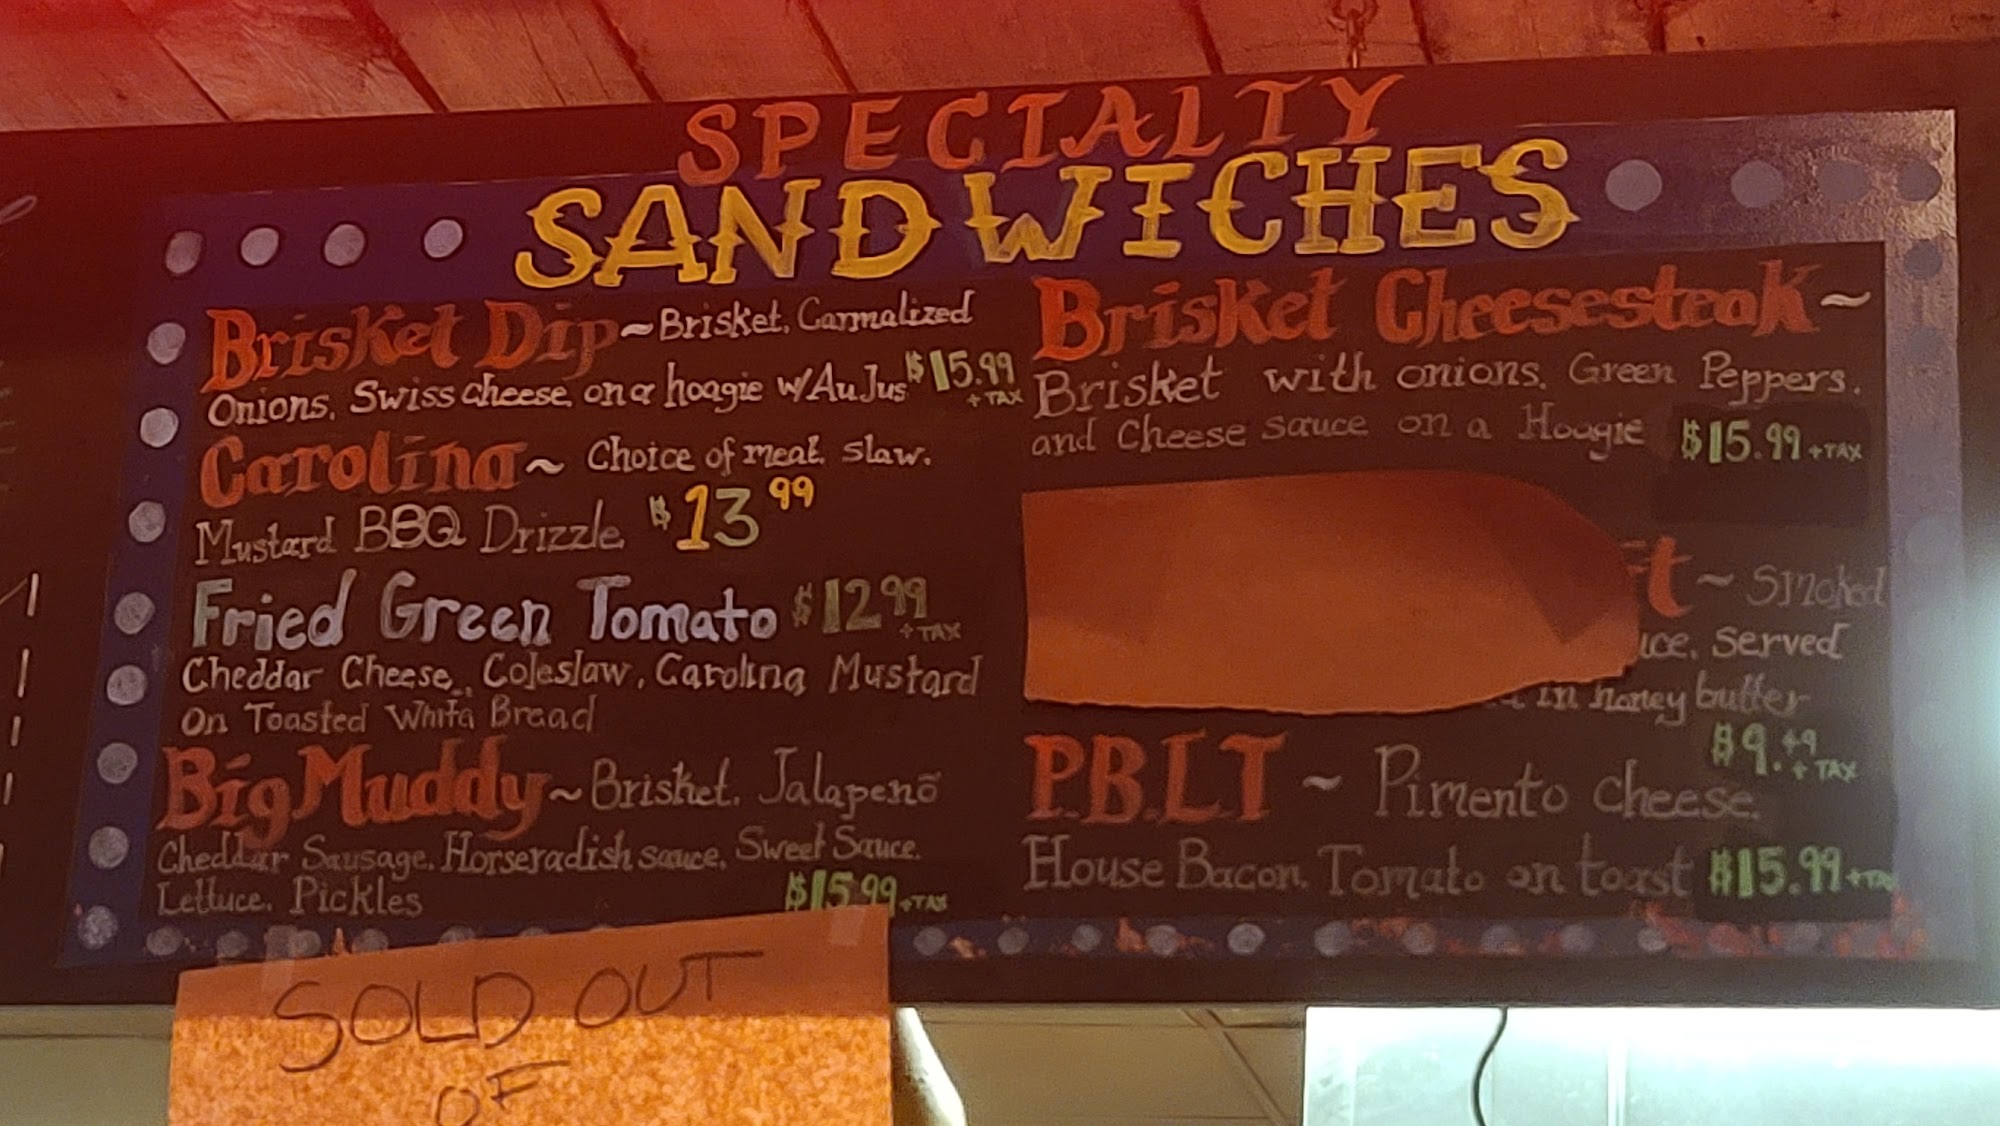 SPECIALTY
SANDWICHES
Brisket Dip ~ Brisket, Carmalized
Onions, Swiss cheese on a hoagie w/ Au Jus $15.99
+ TAX
Carolina ~ Choice of meat, slaw,
Mustard BBQ Drizzle $13.99
Fried Green Tomato $12.99
+ TAX
Cheddar Cheese, Coleslaw, Carolina Mustard
On Toasted White Bread
Big Muddy ~ Brisket, Jalapenõ
Cheddar Sausage, Horseradish sauce, Sweet Sauce,
Lettuce, Pickles $15.99 + TAX
Brisket Cheesesteak ~
Brisket with onions, Green Peppers,
and Cheese sauce on a Hoagie $15.99 + TAX
~ Smoked
served
in honey butter
$9.49
+ TAX
P.B.L.T ~ Pimento cheese,
House Bacon, Tomato on toast $15.99 + TAX
SOLD OUT
OF